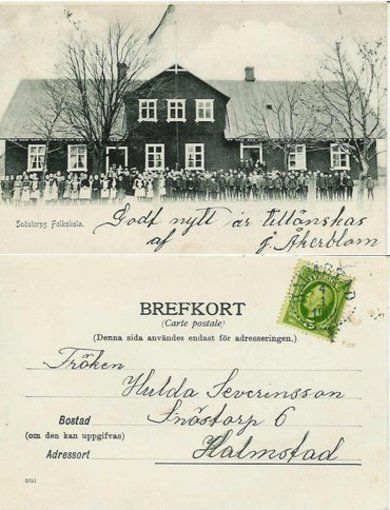 Snöstorps Folkskola.
Godt nytt år tillönskas
af J. Åkerblom
BREFKORT
(Carte postale)
(Denna sida användes endast för adresseringen.)
Fröken
Hulda Severinsson
Bostad
(om den kan uppgifvas)
Snöstorp 6
Adressort
Halmstad